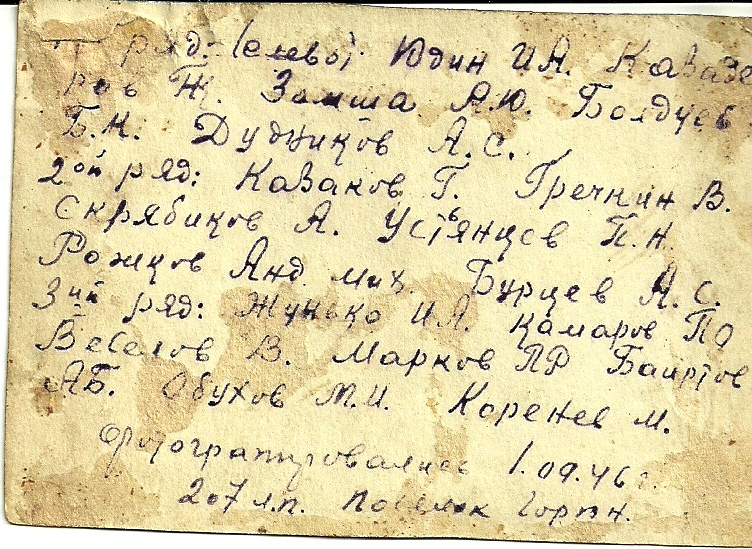 ряд: (слево) Юдин И.А. Каваде
ров Замша А.Ю. Болдчев
Б.Н. Дудников А.С.
2ой ряд: Казаков Г. Гречкин В.
Скрябиков А. Устьянцев П.Н.
Рожков Анд. мих. Бурцев А.С.
3ий ряд: Жунько И.А. Камаров П.О
Веселов В. Марков П.Р Баиртов
А.Б. Обухов М.И. Коренев М.
фотографировались 1.09.46г.
207 л.п. Поселок